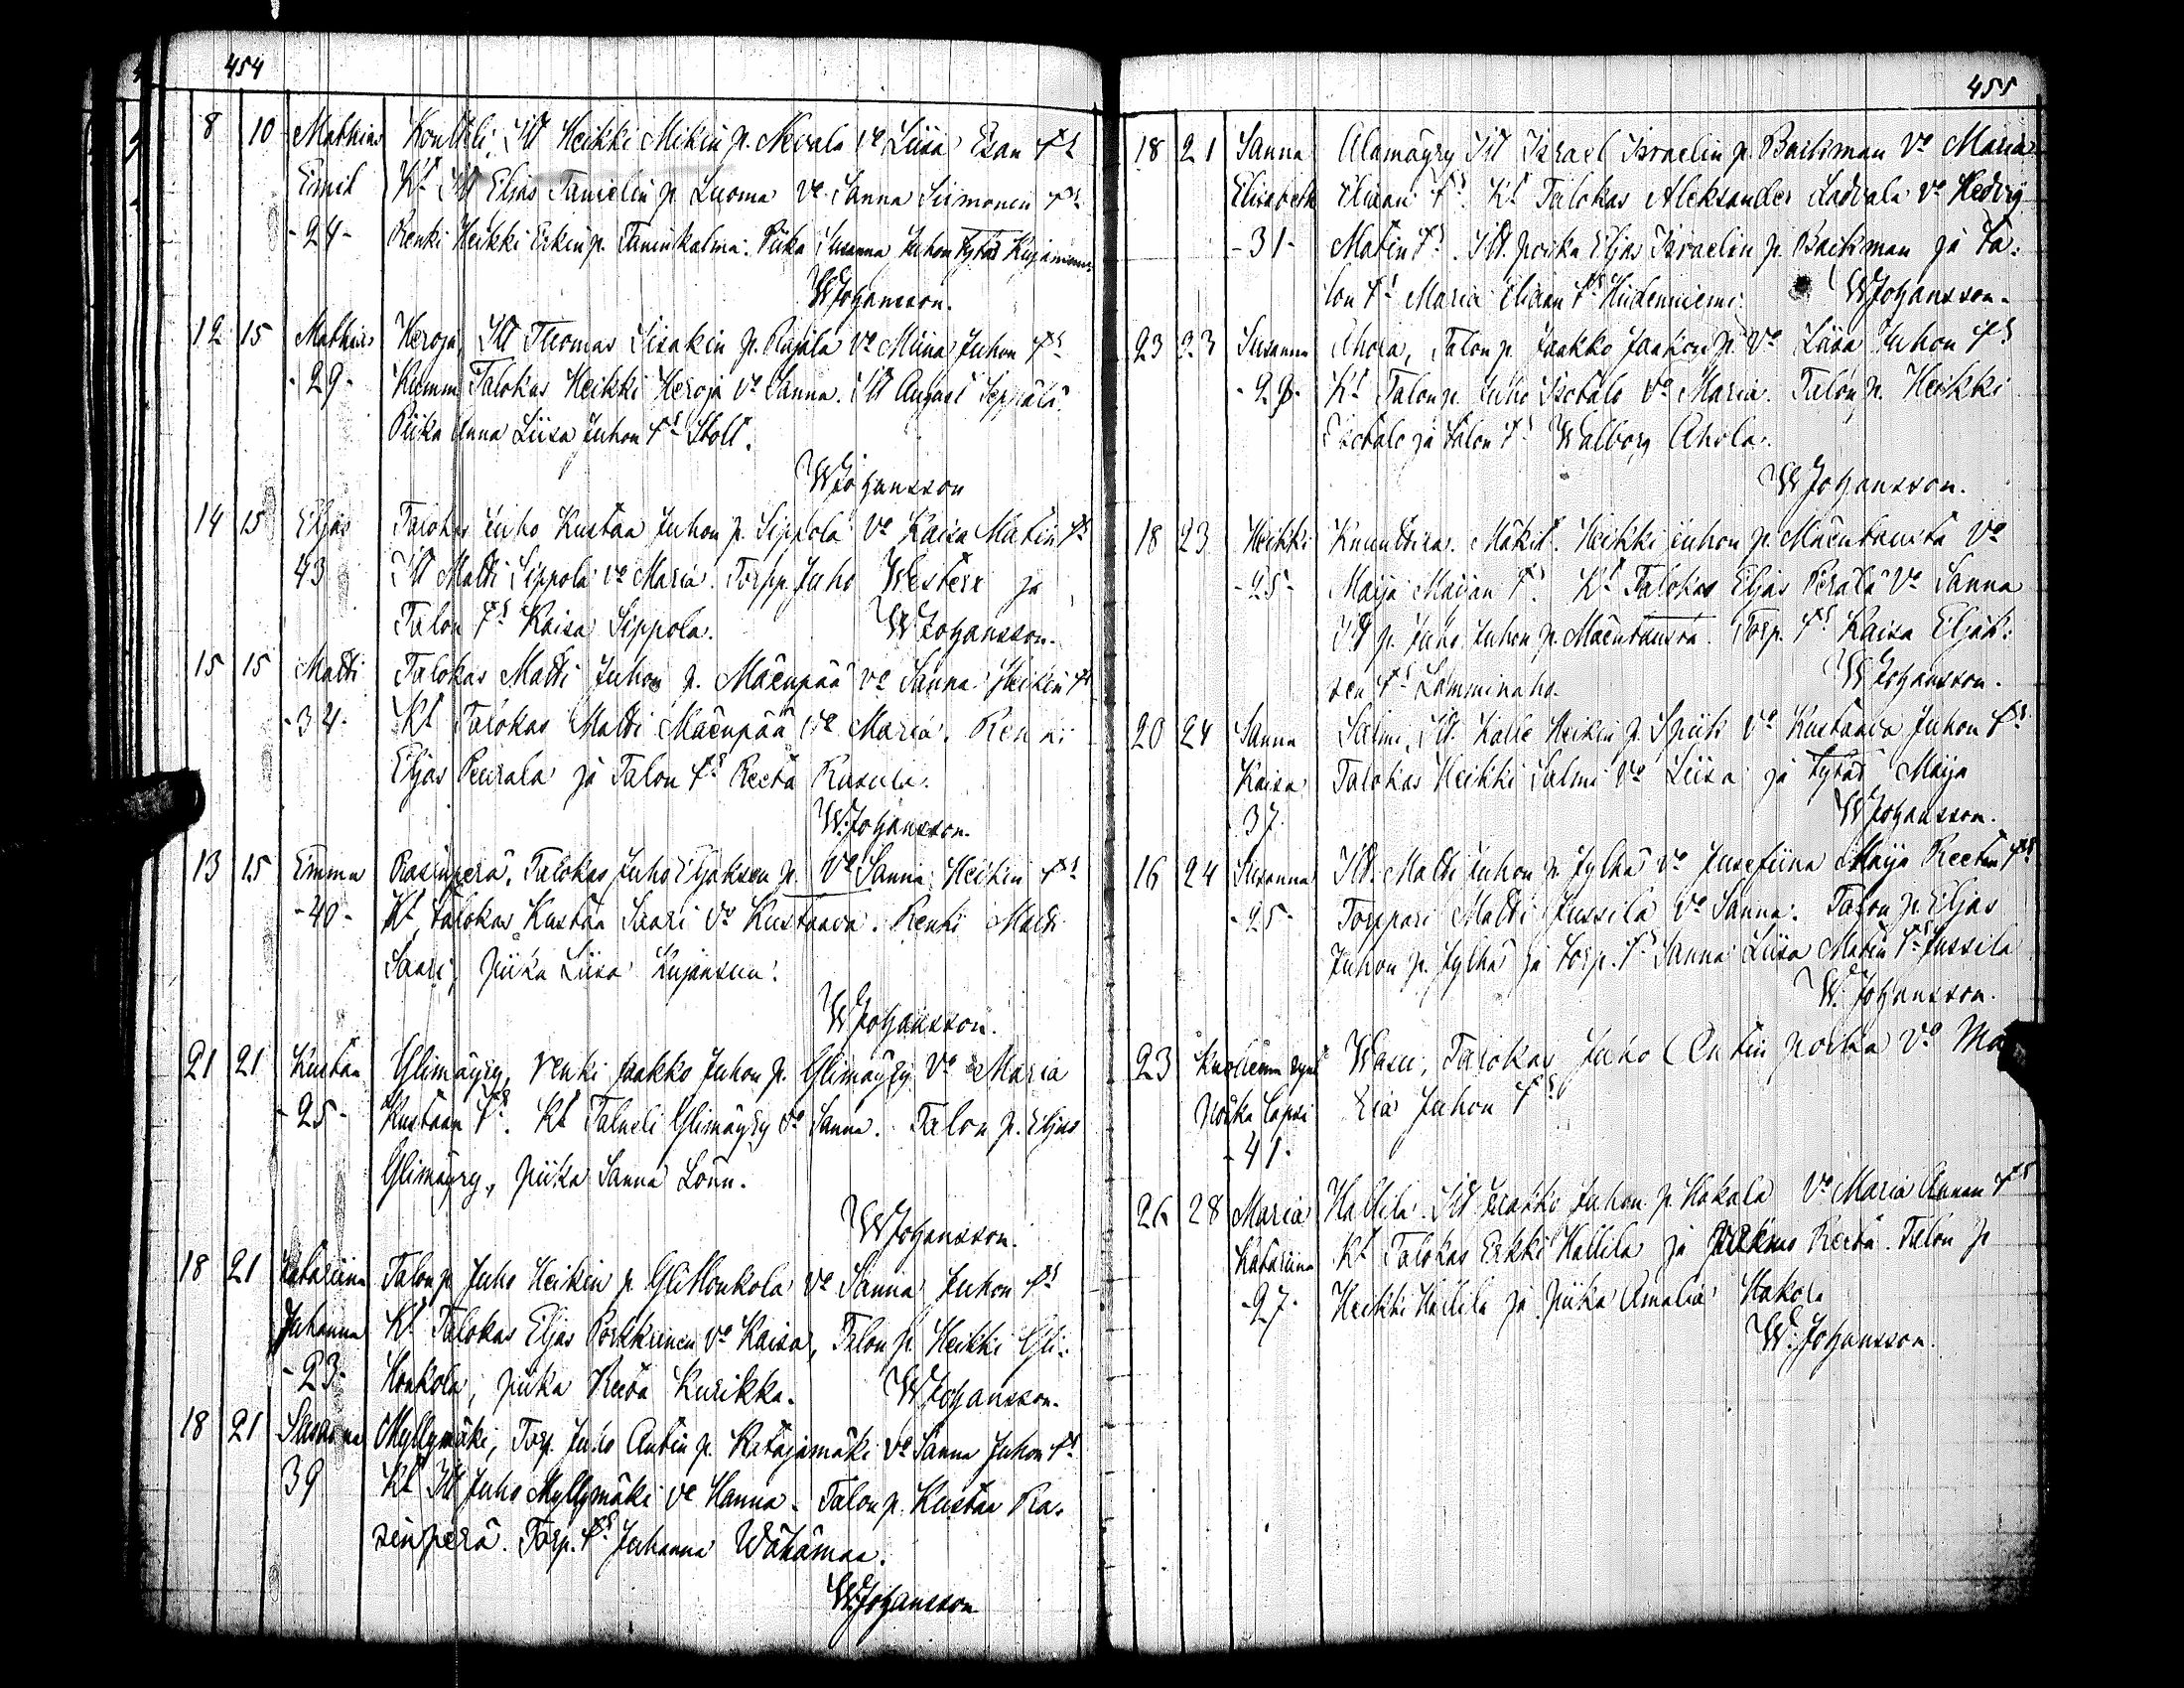 454
8 10 Mathias Kontteli, Itt Heikki Mikin p. Nevala vo Liisa Esan ts
Emil Kt Itt Elias Tanielin p. Luoma vo Sanna Siimonen ts
-24- Renki Heikki Erkin p. Piika Susanna Juhon tytär
W Johansson.
12 15 Mathias Heroja, Itt Thomas Iisakin p. vo Miina Juhon ts
-29- Kumm Talokas Heikki Heroja vo Sanna. Itt August Seppälä.
Piika Anna Liisa Juhon ts Stolt.
W Johansson
14 15 Eljas Talokas Juho Kustaa Juhon p. Sippola vo Kaisa Matin ts
43 Itt Matti Sippola vo Maria. Torpp. Juho Westers ja
Talon ts Kaisa Sippola. W Johansson.
15 15 Matti Talokas Matti Juhon p. Mäenpää vo Sanna Heikin ts
-34- Kt Talokas Matti Mäenpää vo Maria. Renki
Eljas Peurala ja Talon ts Reeta Rasula.
W. Johansson.
13 15 Emma Rasinperä, Talokas Juho Eljaksen p. vo Sanna Heikin ts
-40- Kt Talokas Kustaa Saari vo Kustaava. Renki Matti
Saari, piika Liisa Kujansuu.
W Johansson.
21 21 Kustaa Glimäyry, renki Jaakko Juhon p. Glimäyry vo Maria
-25- Kustaan ts. Kt Talneli Glimäyry vo Sanna. Talon p. Eljas
Glimäyry, piika Sanna Lönn.
W Johansson.
18 21 Katariina Talon p. Juho Heikin p. Gli Honkola vo Sanna Juhon ts
Juhanna Kt Talokas Eljas vo Kaisa, Talon p. Heikki Gli-
-23- Honkola, piika Reeta Kurikka. W Johansson.
18 21 Susanna Myllymäki, Torp. Juho Antin p. Katajamäki vo Sanna Juhon ts
39 Kt Itt Juho Myllymäki vo Hanna. Talon p. Kustaa Ra-
sinperä. Torp. ts Juhanna Wähämaa.
W. Johansson
455
18 21 Sanna Alamäyry Itt Israel Israelin p. Backman vo Maria
Elisabeth Eliaan ts. Kt Talokas Aleksander Ladvala vo Hedvig
-31- Matin ts. Itt. poika Eljas Israelin p. Backman ja ta-
lon ts Maria Eliaan ts Hiidenniemi. W Johansson.
23 23 Susanna Ahola, Talon p. Jaakko Jaakon p. vo Liisa Juhon ts
-29- Kt Talon p. Juho Isotalo vo Maria. Talon p. Heikki
Isotalo ja talon ts Walborg Ahola.
W Johansson.
18 23 Heikki Knuuttila. Mäkit. Heikki Juhon p. Mäentausta vo
-25- Maija Maijan ts. Kt Talokas Eljas Perälä vo Sanna
Itt p. Juho Juhon p. Mäentausta. Torp. ts Kaisa Eljak-
sen ts Lamminaho. W Johansson.
20 24 Sanna Salmi, Itt. Kalle Heikin p. vo Kustaava Juhon ts
Kaisa Talokas Heikki Salmi vo Liisa ja tytär Maija
37. W Johansson.
16 24 Susanna Itt. Matti Juhon p. Jylhä vo Josefiina Maija Reetan ts
-25- Torppari Matti Jussila vo Sanna. Talon p. Eljas
Juhon p. Jylhä ja torp. ts Sanna Liisa Matin ts Jussila
W. Johansson.
23 Kuolleena synt Wasu, Talokas Juho Antin poika vo Ma
Poika lapsi ria Juhon ts
-41-
26 28 Maria Hallila. Itt Jaakko Juhon p. Hakala vo Maria Annan ts
Katariina Kt Talokas Erkki Hallila ja Reeta. Talon p
-27- Heikki Hallila ja piika Amalia Hakola
W. Johansson.